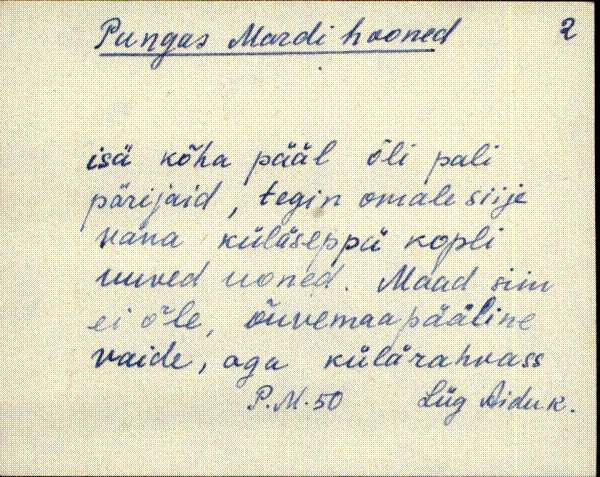 Pungas Mardi hooned 2
isä kõha pääl õli pali
pärijaid, tegin omale siije
vana küläseppä kopli
uuved uoned. Maad siin
ei õle, õuvemaapääline
vaide, aga külärahvass
P.M. 50 Lüg Aidu k.